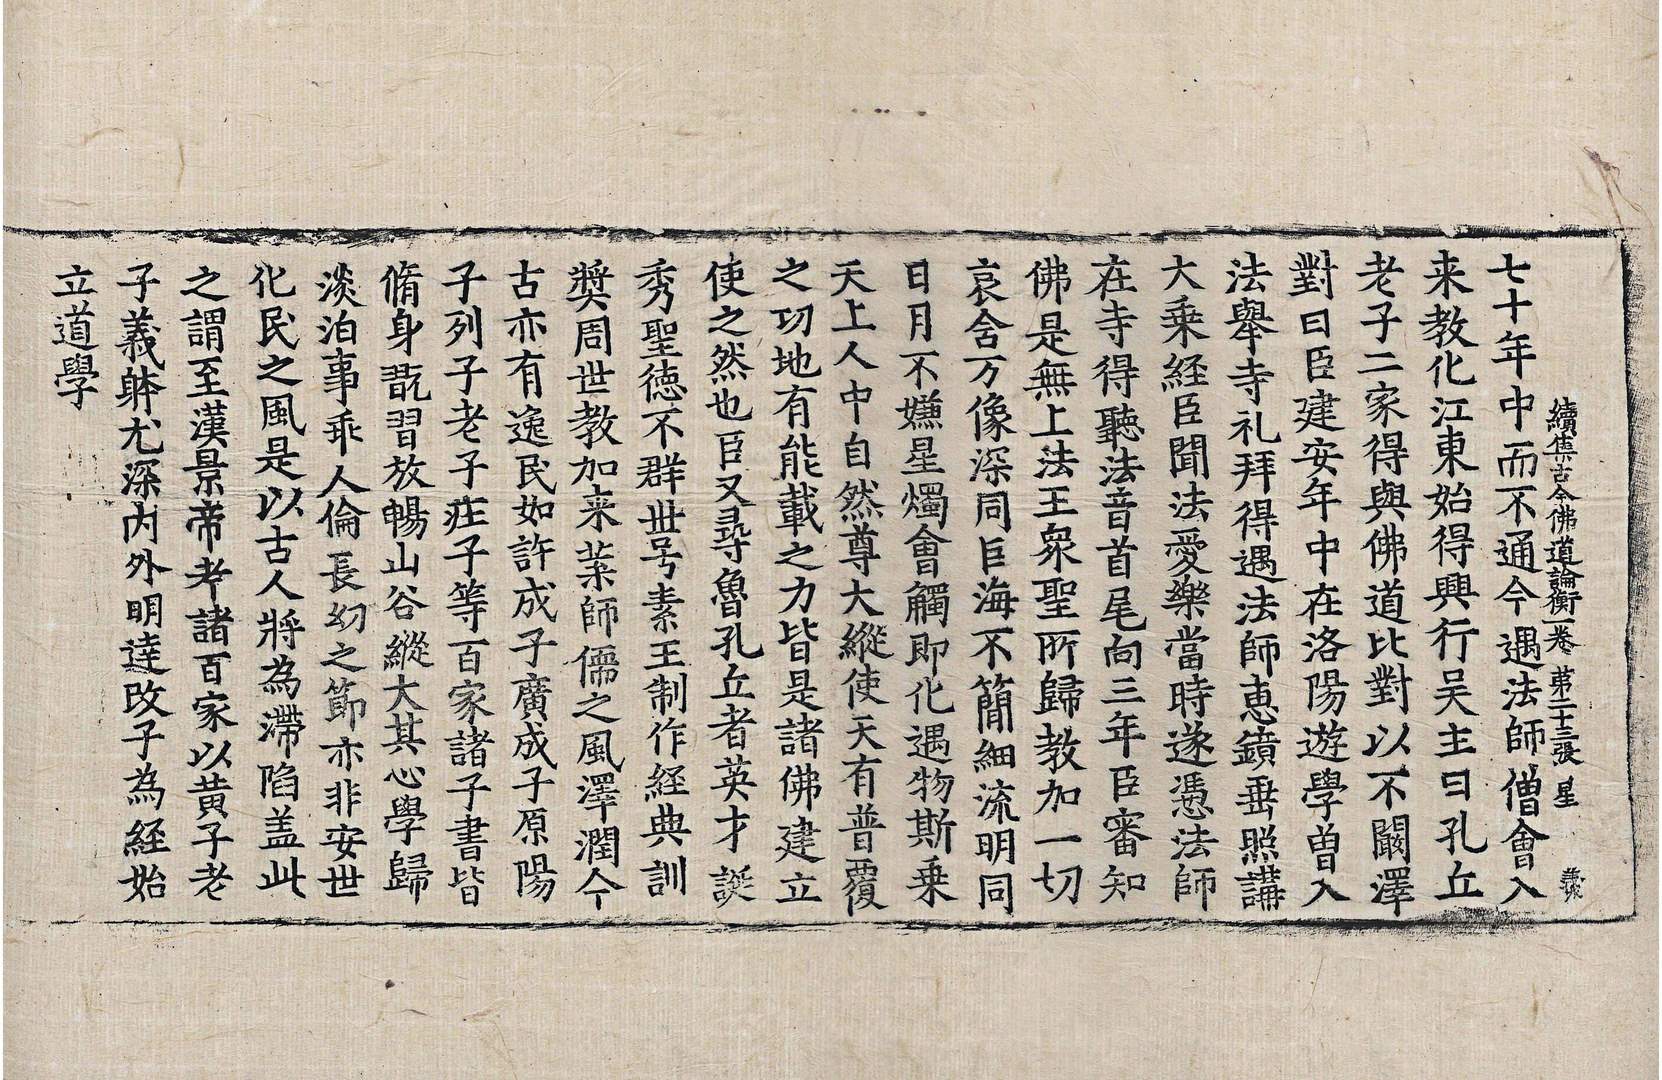 續集古今佛道論衡一卷 第二十三張 星
七十年中而不通今遇法師僧會入
来教化江東始得興行吴主曰孔丘
老子二家得與佛道比對以不闞澤
對曰臣建安年中在洛陽遊學曽入
法舉寺礼拜得遇法師惠鏡垂照講
大乗経臣聞法愛樂當時遂憑法師
在寺得聽法音首尾向三年臣審知
佛是無上法王衆聖所歸教加一切
哀舍万像深同巨海不簡細流明同
日月不嫌星燭會觸即化遇物斯乗
天上人中自然尊大縱使天有普覆
之功地有能載之力皆是諸佛建立
使之然也臣又尋魯孔丘者英才誕
秀聖德不群世号素王制作経典訓
奬周世教加来葉師儒之風澤潤今
古亦有逸民如許成子廣成子原陽
子列子老子莊子等百家諸子書皆
脩身翫習放暢山谷縱大其心學歸
淡泊事乖人倫長幼之節亦非安世
化民之風是以古人將為滯陷盖此
之謂至漢景帝考諸百家以黄子老
子義躰尤深内外明逹改子為経始
立道學